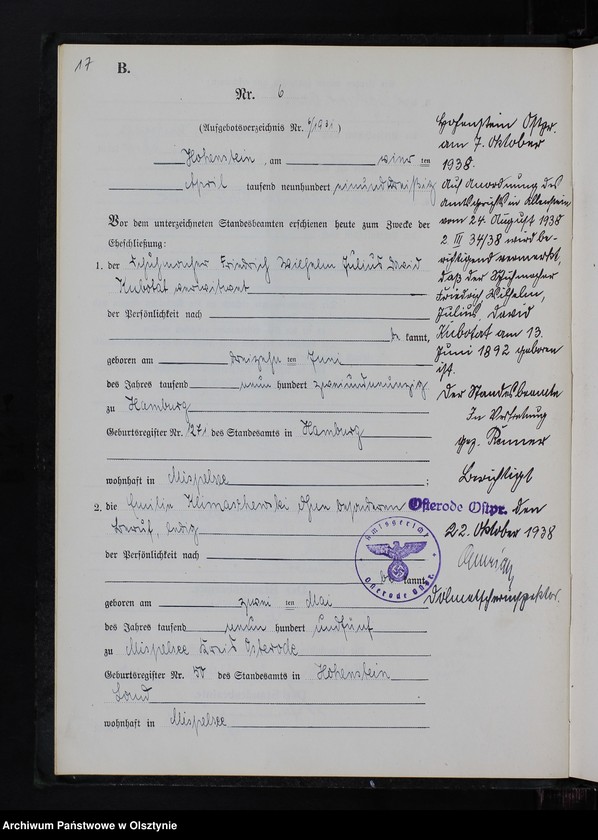 17
B.
Nr. 6
(Aufgebotsverzeichnis Nr. /1931)
Hohenstein, am vier ten
April tausend neunhundert einunddreißig
Vor dem unterzeichneten Standesbeamten erschienen heute zum Zwecke der
Eheschließung:
1. der Schuhmacher Friedrich Wilhelm Julius David
Kubotat verwitwet
der Persönlichkeit nach
be kannt,
geboren am dreizehn ten Juni
des Jahres tausend neun hundert zweiundneunzig
zu Hamburg
Geburtsregister Nr. 1271 des Standesamts in Hamburg
wohnhaft in Mispelsee ;
2. die Emilie Klimaschewski ohne besonderen
Beruf, ledig
der Persönlichkeit nach
be kannt,
geboren am zwei ten Mai
des Jahres tausend neun hundert undfünf
zu Mispelsee Kreis Osterode
Geburtsregister Nr. 50 des Standesamts in Hohenstein
Land
wohnhaft in Mispelsee
Hohenstein Ostpr.
am 7. Oktober
1938.
Auf Anordnung des
Amtsgerichts in Allenstein
vom 24. August 1938
2 III 34/38 wird be-
richtigend vermerkt,
daß der Schuhmacher
Friedrich Wilhelm,
Julius, David
Kubotat am 13.
Juni 1892 geboren
ist.
Der Standesbeamte
In Vertretung
gez. Renner
Berichtigt
Osterode Ostpr. den
22. Oktober 1938
Amtsgericht
Osterode Ostpr.
Archiwum Państwowe w Olsztynie